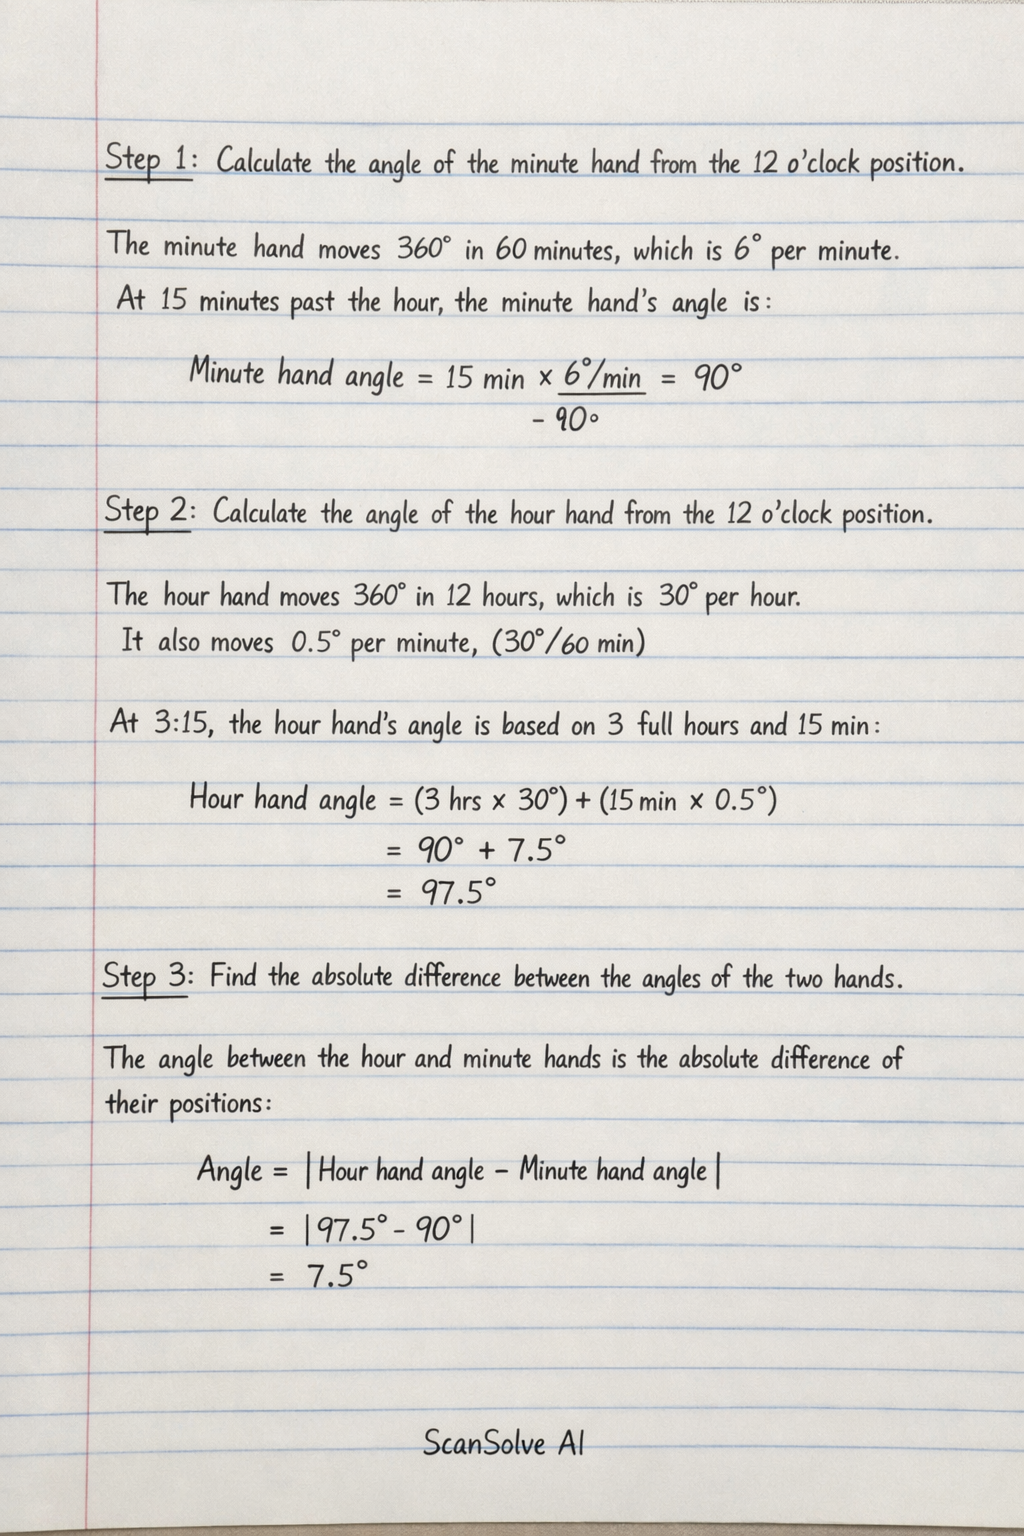 Step 1: Calculate the angle of the minute hand from the 12 o'clock position.
The minute hand moves 360° in 60 minutes, which is 6° per minute.
At 15 minutes past the hour, the minute hand's angle is:
Minute hand angle = 15 min × 6°/min = 90°
- 90°
Step 2: Calculate the angle of the hour hand from the 12 o'clock position.
The hour hand moves 360° in 12 hours, which is 30° per hour.
It also moves 0.5° per minute, (30°/60 min)
At 3:15, the hour hand's angle is based on 3 full hours and 15 min:
Hour hand angle = (3 hrs × 30°) + (15 min × 0.5°)
= 90° + 7.5°
= 97.5°
Step 3: Find the absolute difference between the angles of the two hands.
The angle between the hour and minute hands is the absolute difference of
their positions:
Angle = |Hour hand angle - Minute hand angle|
= |97.5° - 90°|
= 7.5°
ScanSolve AI